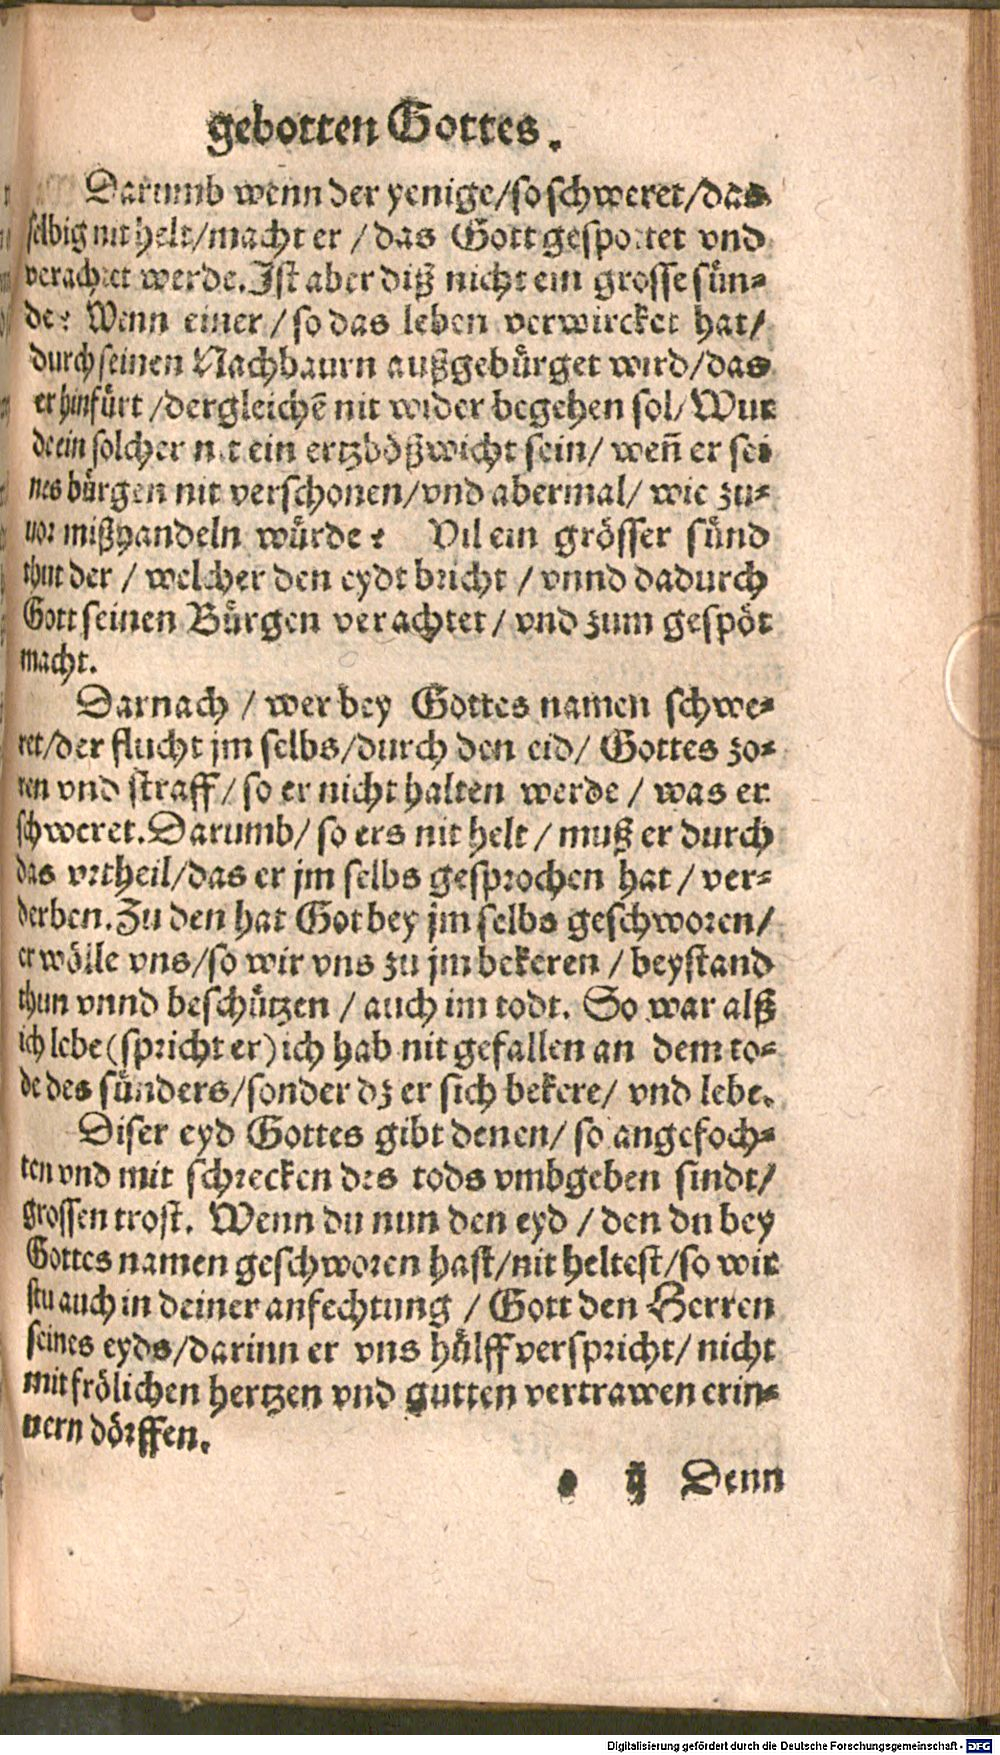 gebotten Gottes.
Darumb wenn der yenige/so schweret/das
selbig nit helt/macht er / das Gott gespottet vnd
verachtet werde. Ist aber diß nicht ein grosse sün-
de? Wenn einer / so das leben verwircket hat/
durch seinen Nachbaurn außgebürget wird/das
er hinfürt /dergleichē nit wider begehen sol/ Wur
de ein solcher nit ein ertzbößwicht sein/ weñ er sei
nes bürgen nit verschonen/vnd abermal/ wie zu-
uor mißhandeln würde? Vil ein grösser sünd
thut der / welcher den eydt bricht / vnnd dadurch
Gott seinen Bürgen verachtet / vnd zum gespöt
macht.
Darnach / wer bey Gottes namen schwe-
ret/der flucht jm selbs/durch den eid/ Gottes zo-
ren vnd straff/ so er nicht halten werde / was er
schweret. Darumb/ so ers nit helt / muß er durch
das vrtheil/das er jm selbs gesprochen hat / ver-
derben. Zu den hat Got bey jm selbs geschworen/
er wölle vns/so wir vns zu jm bekeren / beystand
thun vnnd beschützen / auch im todt. So war alß
ich lebe (spricht er) ich hab nit gefallen an dem to-
de des sünders/sonder dz er sich bekere/ vnd lebe.
Diser eyd Gottes gibt denen/ so angefoch-
ten vnd mit schrecken des tods vmbgeben sindt/
grossen trost. Wenn du nun den eyd / den du bey
Gottes namen geschworen hast/nit heltest/so wir
stu auch in deiner anfechtung / Gott den Herren
seines eyds/darinn er vns hülff verspricht/ nicht
mit frölichen hertzen vnd gutten vertrawen erin-
nern dörffen.
e ij Denn
Digitalisierung gefördert durch die Deutsche Forschungsgemeinschaft - DFG